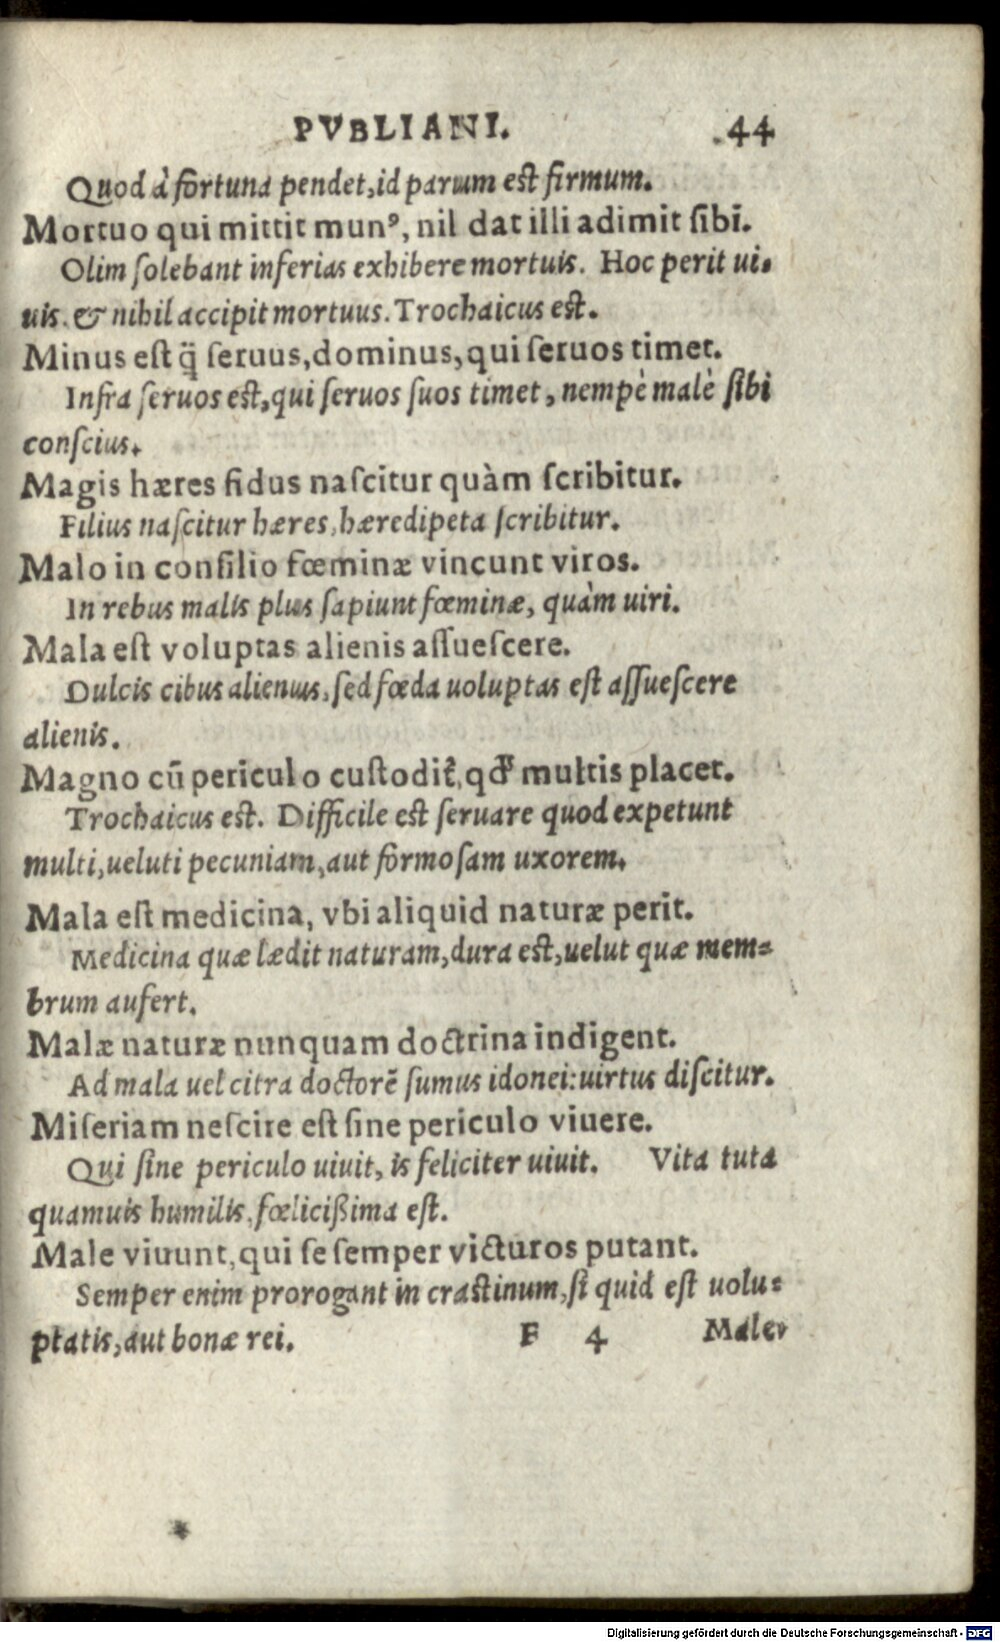 PVBLIANI. 44
Quod à fortuna pendet, id parum est firmum.
Mortuo qui mittit munꝰ, nil dat illi adimit sibi.
Olim ſolebant inferias exhibere mortuis. Hoc perit ui-
uis. & nihil accipit mortuus. Trochaicus est.
Minus est q̃ ſeruus, dominus, qui ſeruos timet.
Infra ſeruos est, qui ſeruos ſuos timet, nempè malè ſibi
conſcius.
Magis hæres fidus naſcitur quàm ſcribitur.
Filius naſcitur hæres, hæredipeta ſcribitur.
Malo in conſilio fœminæ vincunt viros.
In rebus malis plus ſapiunt fœminæ, quàm uiri.
Mala eſt voluptas alienis aſſueſcere.
Dulcis cibus alienus, ſed fœda uoluptas eſt aſſueſcere
alienis.
Magno cũ periculo cuſtodit᷑, qđ multis placet.
Trochaicus eſt. Difficile eſt ſeruare quod expetunt
multi, ueluti pecuniam, aut formoſam uxorem.
Mala eſt medicina, vbi aliquid naturæ perit.
Medicina quæ lædit naturam, dura eſt, uelut quæ mem-
brum aufert.
Malæ naturæ nunquam doctrina indigent.
Ad mala uel citra doctorẽ ſumus idonei: uirtus diſcitur.
Miſeriam neſcire eſt ſine periculo viuere.
Qui ſine periculo uiuit, is feliciter uiuit. Vita tuta
quamuis humilis, fœliciſſima eſt.
Male viuunt, qui ſe ſemper victuros putant.
Semper enim prorogant in craſtinum, ſi quid eſt uolu-
ptatis, aut bonæ rei. F 4 Male
Digitalisierung gefördert durch die Deutsche Forschungsgemeinschaft - DFG